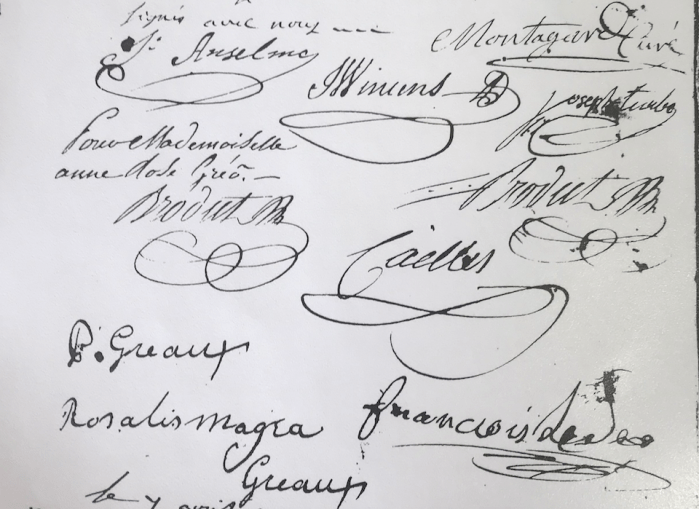 signés avec nous
St Anselme Montagure Curé
J Winens Joseph turbe
Pour Mademoiselle
anne Rose Gréo. —
Brodut Brodut
Caelles
P. Greaux
Rosalismagra francois dedeo
Greaux
le 7 avril